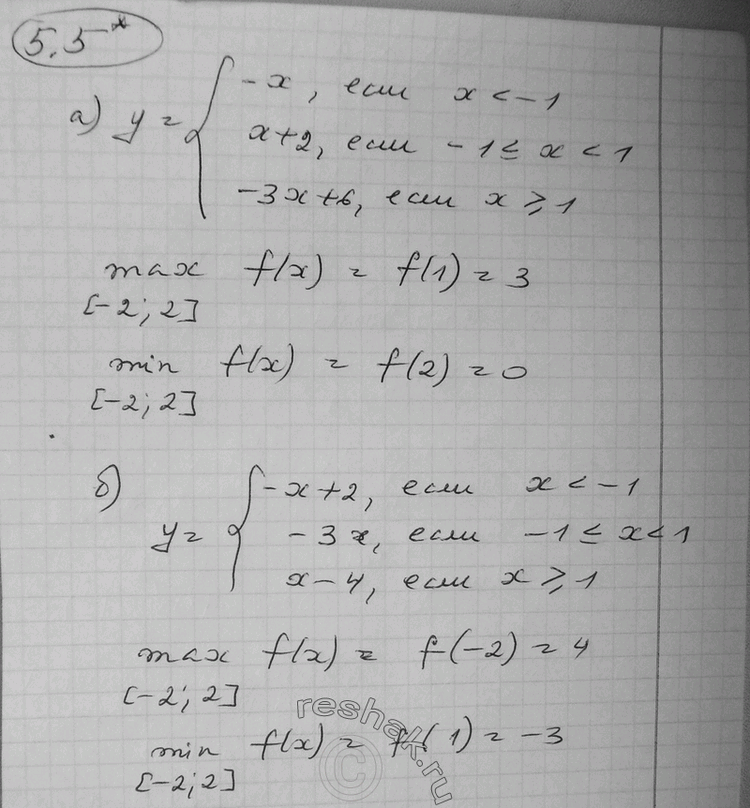 5.5*
а) y = { -x, если x < -1
x+2, если -1 ≤ x < 1
-3x+6, если x ≥ 1
max f(x) = f(1) = 3
[-2; 2]
min f(x) = f(2) = 0
[-2; 2]
б) y = { -x+2, если x < -1
-3x, если -1 ≤ x < 1
x-4, если x ≥ 1
max f(x) = f(-2) = 4
[-2; 2]
min f(x) = f(1) = -3
[-2; 2]
reshak.ru
©